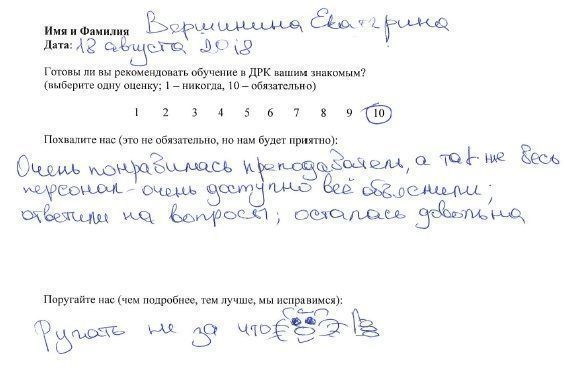 Имя и Фамилия Вершинина Екатерина
Дата: 18 августа 2018
Готовы ли вы рекомендовать обучение в ДРК вашим знакомым?
(выберите одну оценку; 1 – никогда, 10 – обязательно)
1 2 3 4 5 6 7 8 9 10
Похвалите нас (это не обязательно, но нам будет приятно):
Очень понравилась преподаватель, а так же весь
персонал - очень доступно всё объяснили;
ответили на вопросы; осталась довольна
Поругайте нас (чем подробнее, тем лучше, мы исправимся):
Ругать не за что